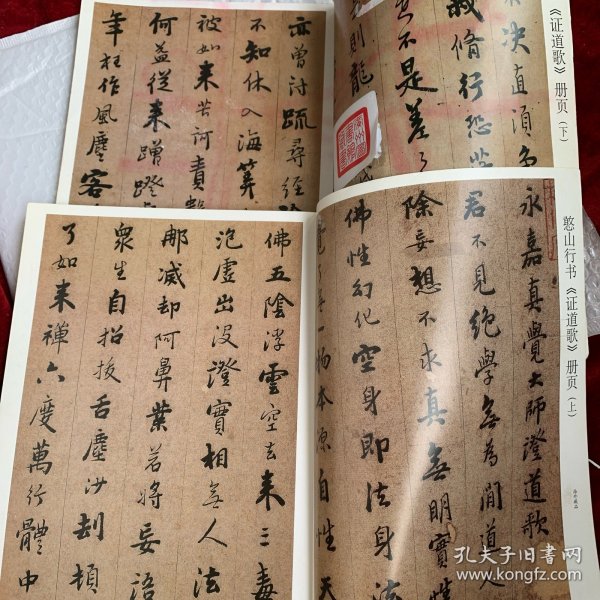 《证道歌》册页（下）
决直須
裁脩行恐
不是差
則龍
亦曾討疏尋經
不知休入海筭
被如来苦訶責
何益從来蹭蹬
年枉作風塵客
憨山行书《证道歌》册页（上）
永嘉真覺大師證道歌
君不見絕學無為閒道人
除妄想不求真無明實性
佛性幻化空身即法身法
覺了無一物本源自性天
佛五陰浮雲空去来三毒
泡虛出没證實相無人法
那滅却阿鼻業若將妄語
衆生自招拔舌塵沙刼頓
了如来禪六度萬行體中
孔夫子旧书网
www.kongfz.com